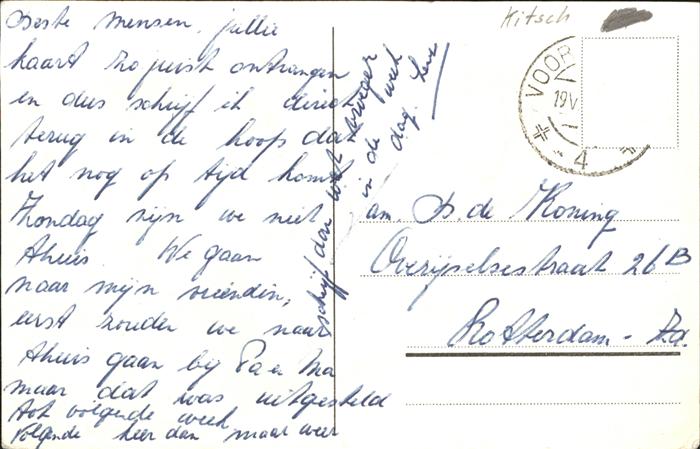 Beste mensen, jullie
kaart zojuist ontvangen
en dus schrijf ik direct
terug in de hoop dat
het nog op tijd komt
Zondag zijn we niet
thuis. We gaan
naar mijn vriendin,
eerst zouden we naar
thuis gaan bij Pa en Ma
maar dat was uitgesteld
tot volgende week
Volgende keer dan maar weer
schrijf dan wat vroeger
in de week
dag.
Kitsch
VOOR
19 V
4
am. D. de Koning
Overijselsestraat 26B
Rotterdam - Zd.